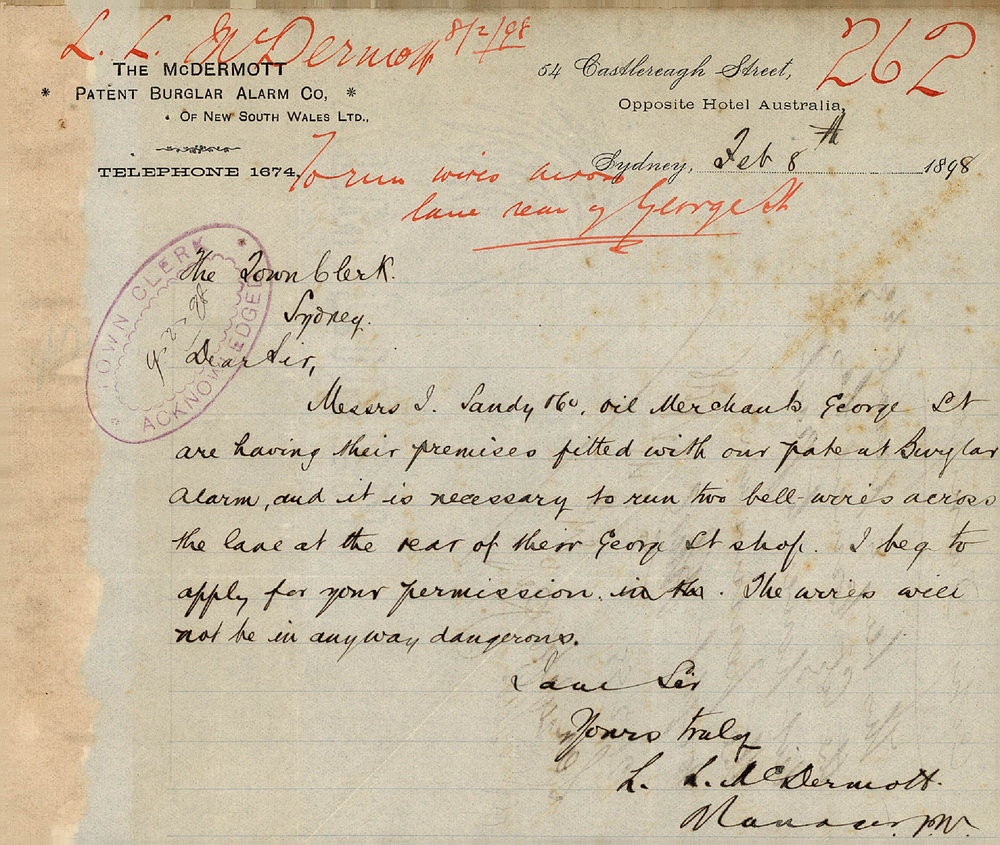 L. L. McDermott 8/2/98
262
THE MCDERMOTT
* PATENT BURGLAR ALARM CO, *
OF NEW SOUTH WALES LTD.,
TELEPHONE 1674.
54 Castlereagh Street,
Opposite Hotel Australia,
Sydney, Feb 8th 1898
To run wires across
lane rear of George St
TOWN CLERK
9-2-98
ACKNOWLEDGED
The Town Clerk.
Sydney.
Dear Sir,
Messrs J. Sandy & Co, oil Merchants George St
are having their premises fitted with our patent Burglar
Alarm, and it is necessary to run two bell-wires across
the lane at the rear of their George St shop. I beg to
apply for your permission. The wires will
not be in anyway dangerous.
I am Sir
Yours truly
L. L. McDermott.
Manager.